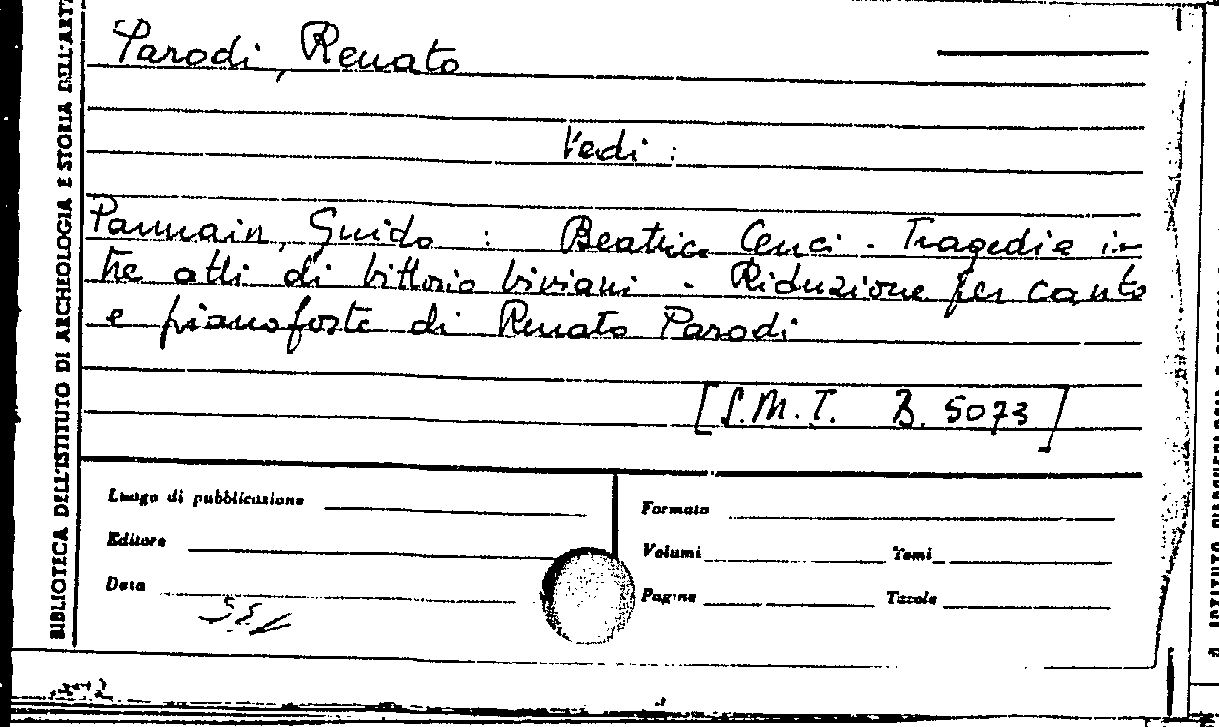 BIBLIOTECA DELL'ISTITUTO DI ARCHEOLOGIA E STORIA DELL'ARTE
Parodi, Renato
Vedi :
Pannain, Guido : Beatrice Cenci - Tragedia in
tre atti di Vittorio Viviani - Riduzione per canto
e pianoforte di Renato Parodi
[S.M.T. B. 5073]
Luogo di pubblicazione
Formato
Editore
Volumi Tomi
Data
Pagine Tavole